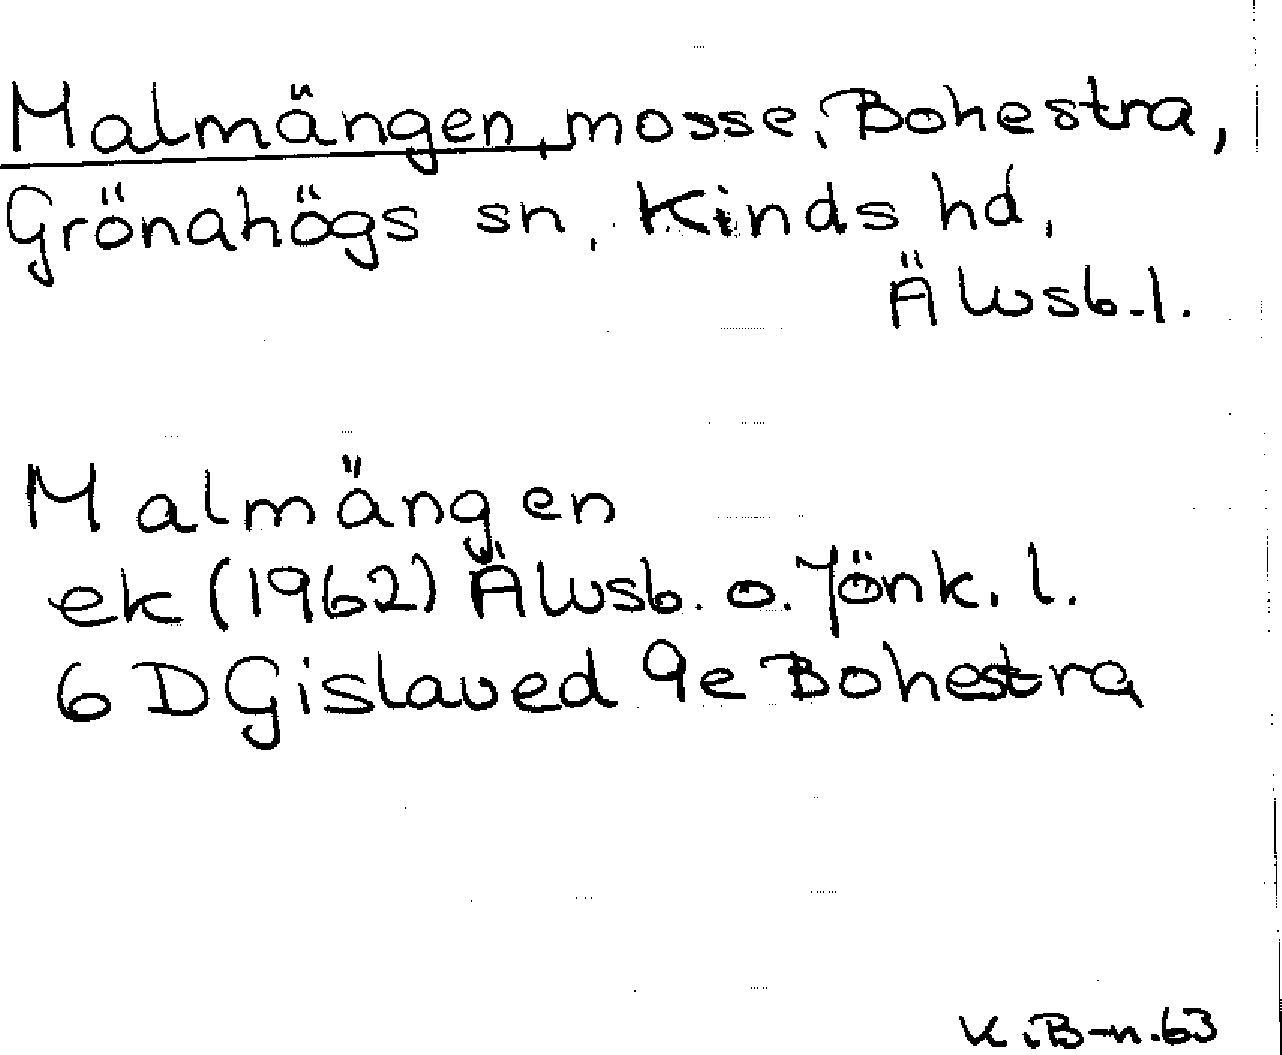 Malmängen, mosse, Bohestra,
Grönahögs sn, Kinds hd,
Älvsb.l.
Malmängen
ek (1962) Älvsb. o. Jönk. l.
6 D Gislaved 9e Bohestra
K.B-n.63